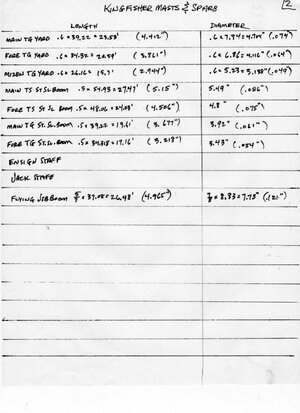 KINGFISHER MASTS & SPARS 2
LENGTH DIAMETER
MAIN TG YARD .6 x 39.22 = 23.53' (4.412") .6 x 7.84 = 4.704" (.074)
FORE TG YARD .6 x 34.32 = 20.59' (3.861") .6 x 6.86 = 4.116" (.064)
MIZEN TG YARD .6 x 26.16 = 15.7' (2.944") .6 x 5.23 = 3.138" (.049)
MAIN TS ST. SL. BOOM .5 x 54.93 = 27.47' (5.15") 5.49" (.086")
FORE TS ST. SL. BOOM .5 x 48.06 = 24.03' (4.506") 4.8" (.075")
MAIN TG ST. SL. BOOM .5 x 39.22 = 19.61' (3.677") 3.92" (.061")
FORE TG ST. SL. BOOM .5 x 34.318 = 17.16' (3.218") 3.43" (.054")
ENSIGN STAFF
JACK STAFF
FLYING JIB BOOM x 37.08 = 26.48' (4.965") x 8.83 = 7.73" (.121")